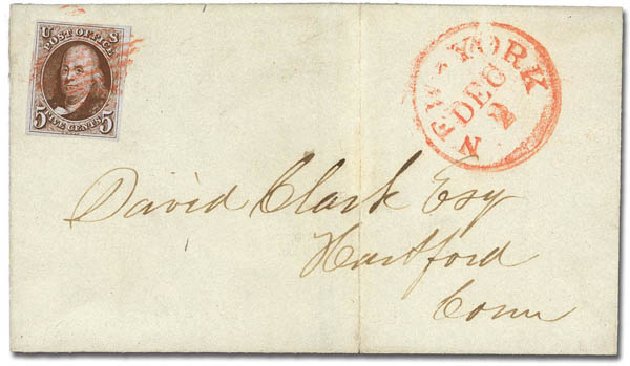 U S
POST OFFICE
5 FIVE CENTS 5
NEW-YORK
DEC
2
David Clark Esq
Hartford
Conn